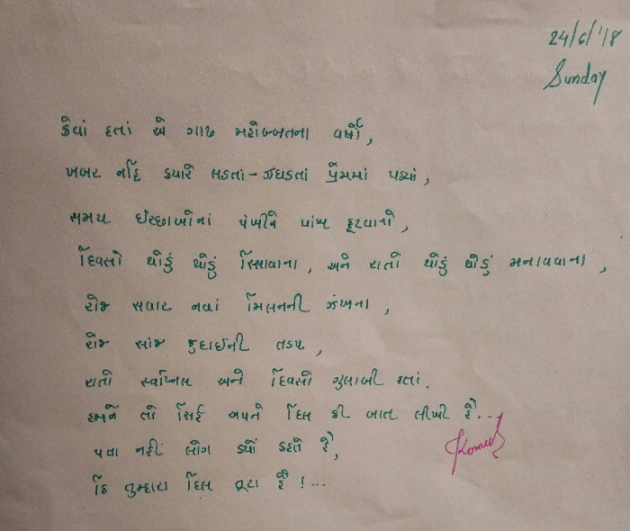 24/6/'18
Sunday
કેવાં હતાં એ ગાઢ મહોબ્બતના વર્ષો,
ખબર નહિં ક્યારે લડતાં-ઝઘડતાં પ્રેમમાં પડ્યાં,
સમય ઈચ્છાઓનાં પંખીને પાંખ ફૂટવાનો,
દિવસો થોડું થોડું રિસાવાના, અને રાતો થોડું થોડું મનાવવાના,
રોજ સવાર નવાં મિલનની ઝંખના,
રોજ સાંજ જુદાઈની તડપ,
રાતો સ્વપ્નિલ અને દિવસો ગુલાબી હતાં.
હમને તો સિર્ફ અપને દિલ કી બાત લીખી હૈ...
પતા નહીં લોગ ક્યોં કહતે હૈં,
કિ તુમ્હારા દિલ તૂટા હૈ!...